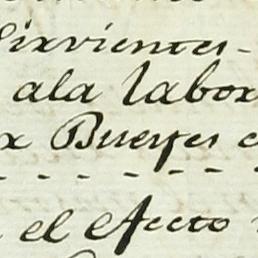 Sirvientes-
ala labor
Bueyes
el efecto